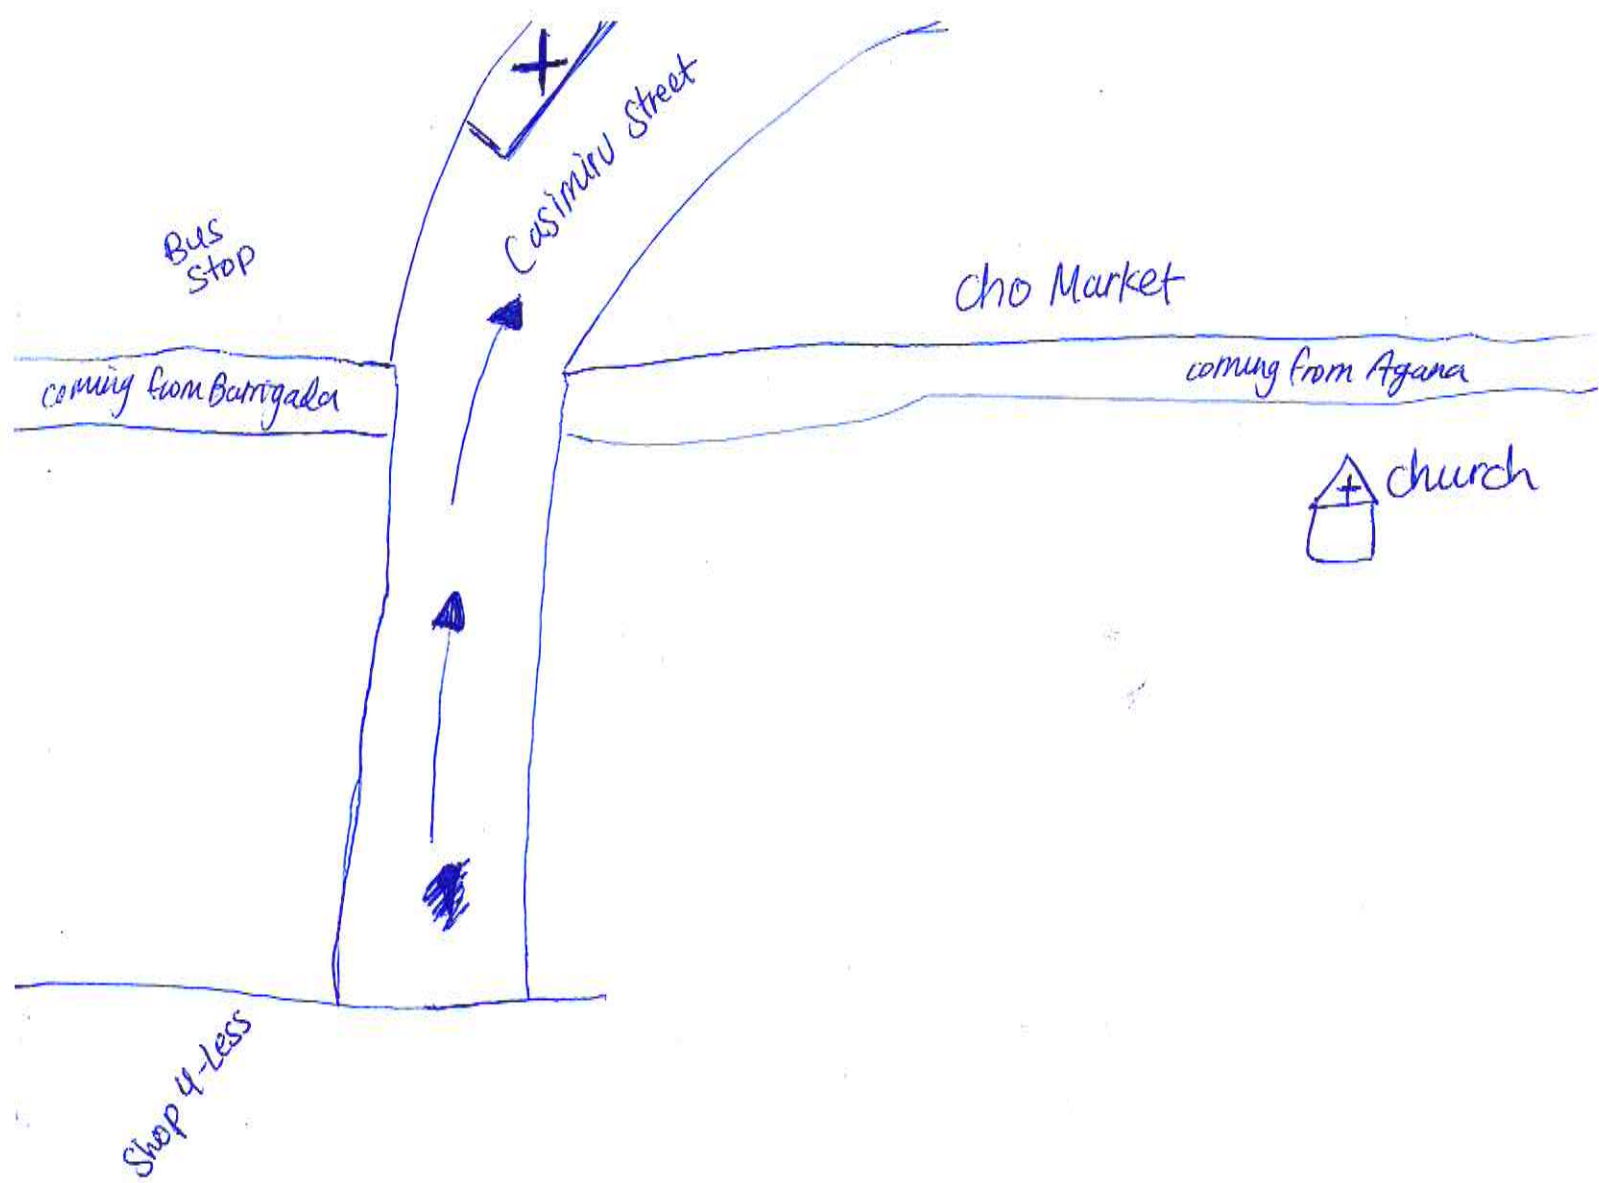 Casimiru Street
Bus
Stop
Cho Market
coming from Barrigada
coming from Agana
church
Shop 4-Less